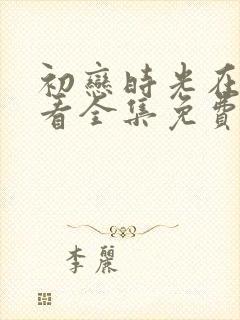 初戀時光在
看全集免費
李麗